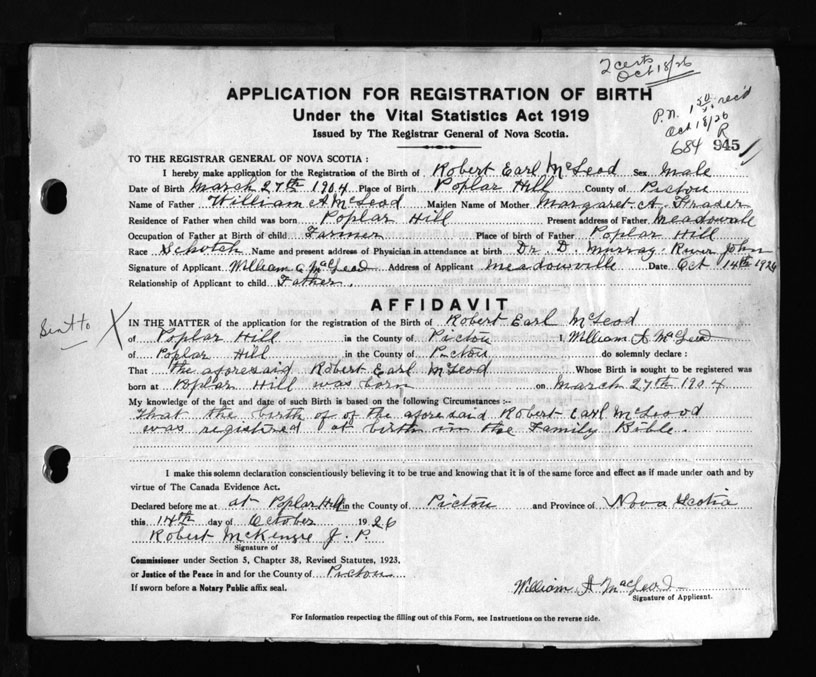 2 certs
Oct 18/26
APPLICATION FOR REGISTRATION OF BIRTH
Under the Vital Statistics Act 1919
Issued by The Registrar General of Nova Scotia.
P.N. 1 50 rec'd
Oct 18/26
R
684 945
TO THE REGISTRAR GENERAL OF NOVA SCOTIA :
I hereby make application for the Registration of the Birth of Robert Earl McLeod Sex Male
Date of Birth March 27th 1904 Place of Birth Poplar Hill County of Pictou
Name of Father William A McLeod Maiden Name of Mother Margaret A. Fraser
Residence of Father when child was born Poplar Hill Present address of Father Meadowvale
Occupation of Father at Birth of child Farmer Place of birth of Father Poplar Hill
Race Schotch Name and present address of Physician in attendance at birth Dr. D. Murray River John
Signature of Applicant William A MacLeod Address of Applicant Meadowville Date Oct 14th 1926
Relationship of Applicant to child Father.
AFFIDAVIT
Sent to X
IN THE MATTER of the application for the registration of the Birth of Robert Earl McLeod
of Poplar Hill in the County of Pictou I, William A McLeod
of Poplar Hill in the County of Pictou do solemnly declare :
That the aforesaid Robert Earl McLeod Whose Birth is sought to be registered was
born at Poplar Hill was born on March 27th 1904
My knowledge of the fact and date of such Birth is based on the following Circumstances :-
That the birth of of the aforesaid Robert Earl McLeood
was registred at birth in the Family Bible.
I make this solemn declaration conscientiously believing it to be true and knowing that it is of the same force and effect as if made under oath and by
virtue of The Canada Evidence Act.
Declared before me at at Poplar Hill in the County of Pictou and Province of Nova Scotia
this 14th day of October 1926
Robert McKenzie J. P.
Signature of
Commissioner under Section 5, Chapter 38, Revised Statutes, 1923.
or Justice of the Peace in and for the County of Pictou
If sworn before a Notary Public affix seal.
William A MacLeod
Signature of Applicant.
For Information respecting the filling out of this Form, see Instructions on the reverse side.